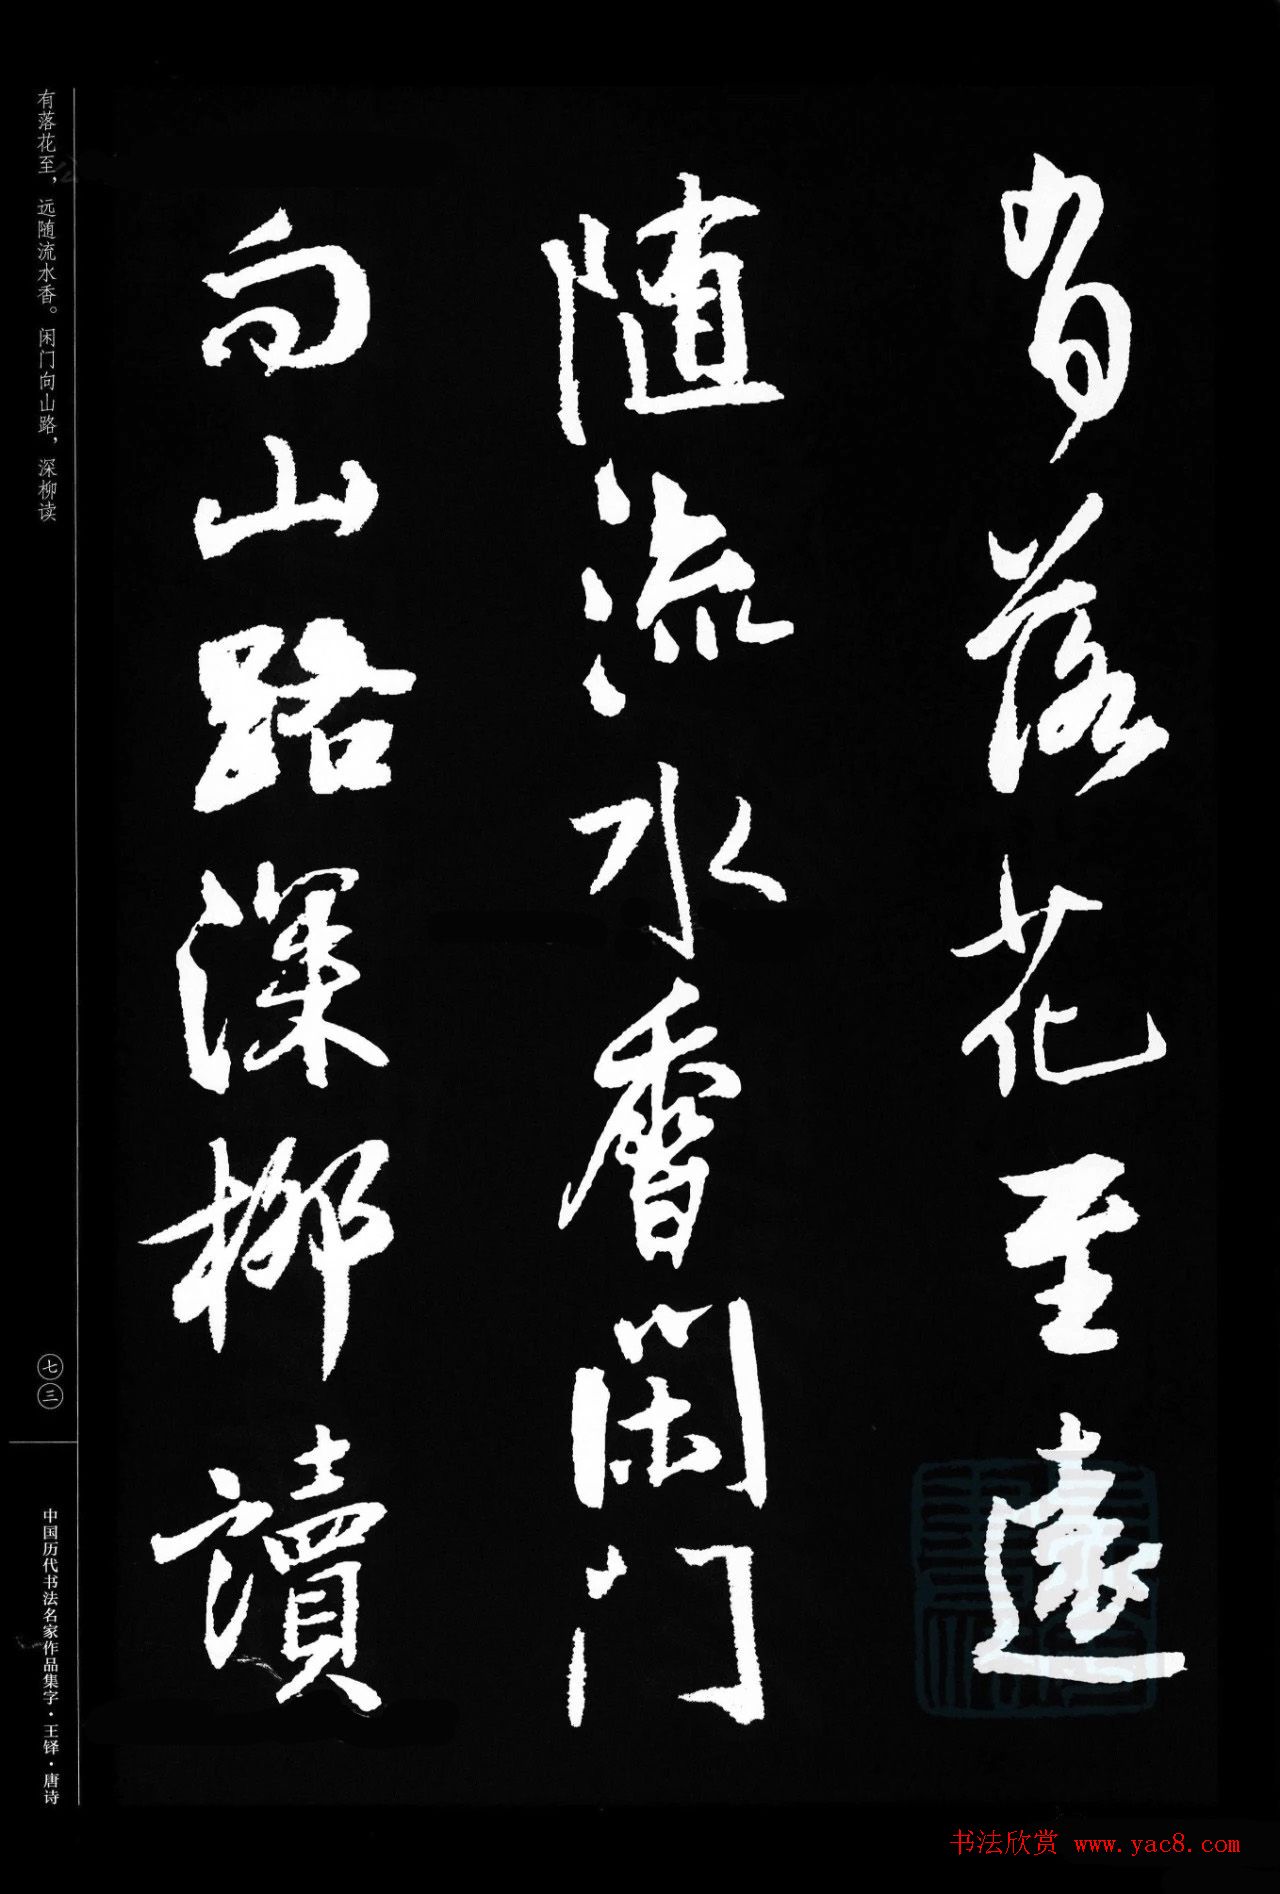 有落花至遠
随流水香闲门
向山路深柳讀
有落花至，远随流水香。闲门向山路，深柳读
七三
中国历代书法名家作品集字·王铎·唐诗
书法欣赏 www.yac8.com